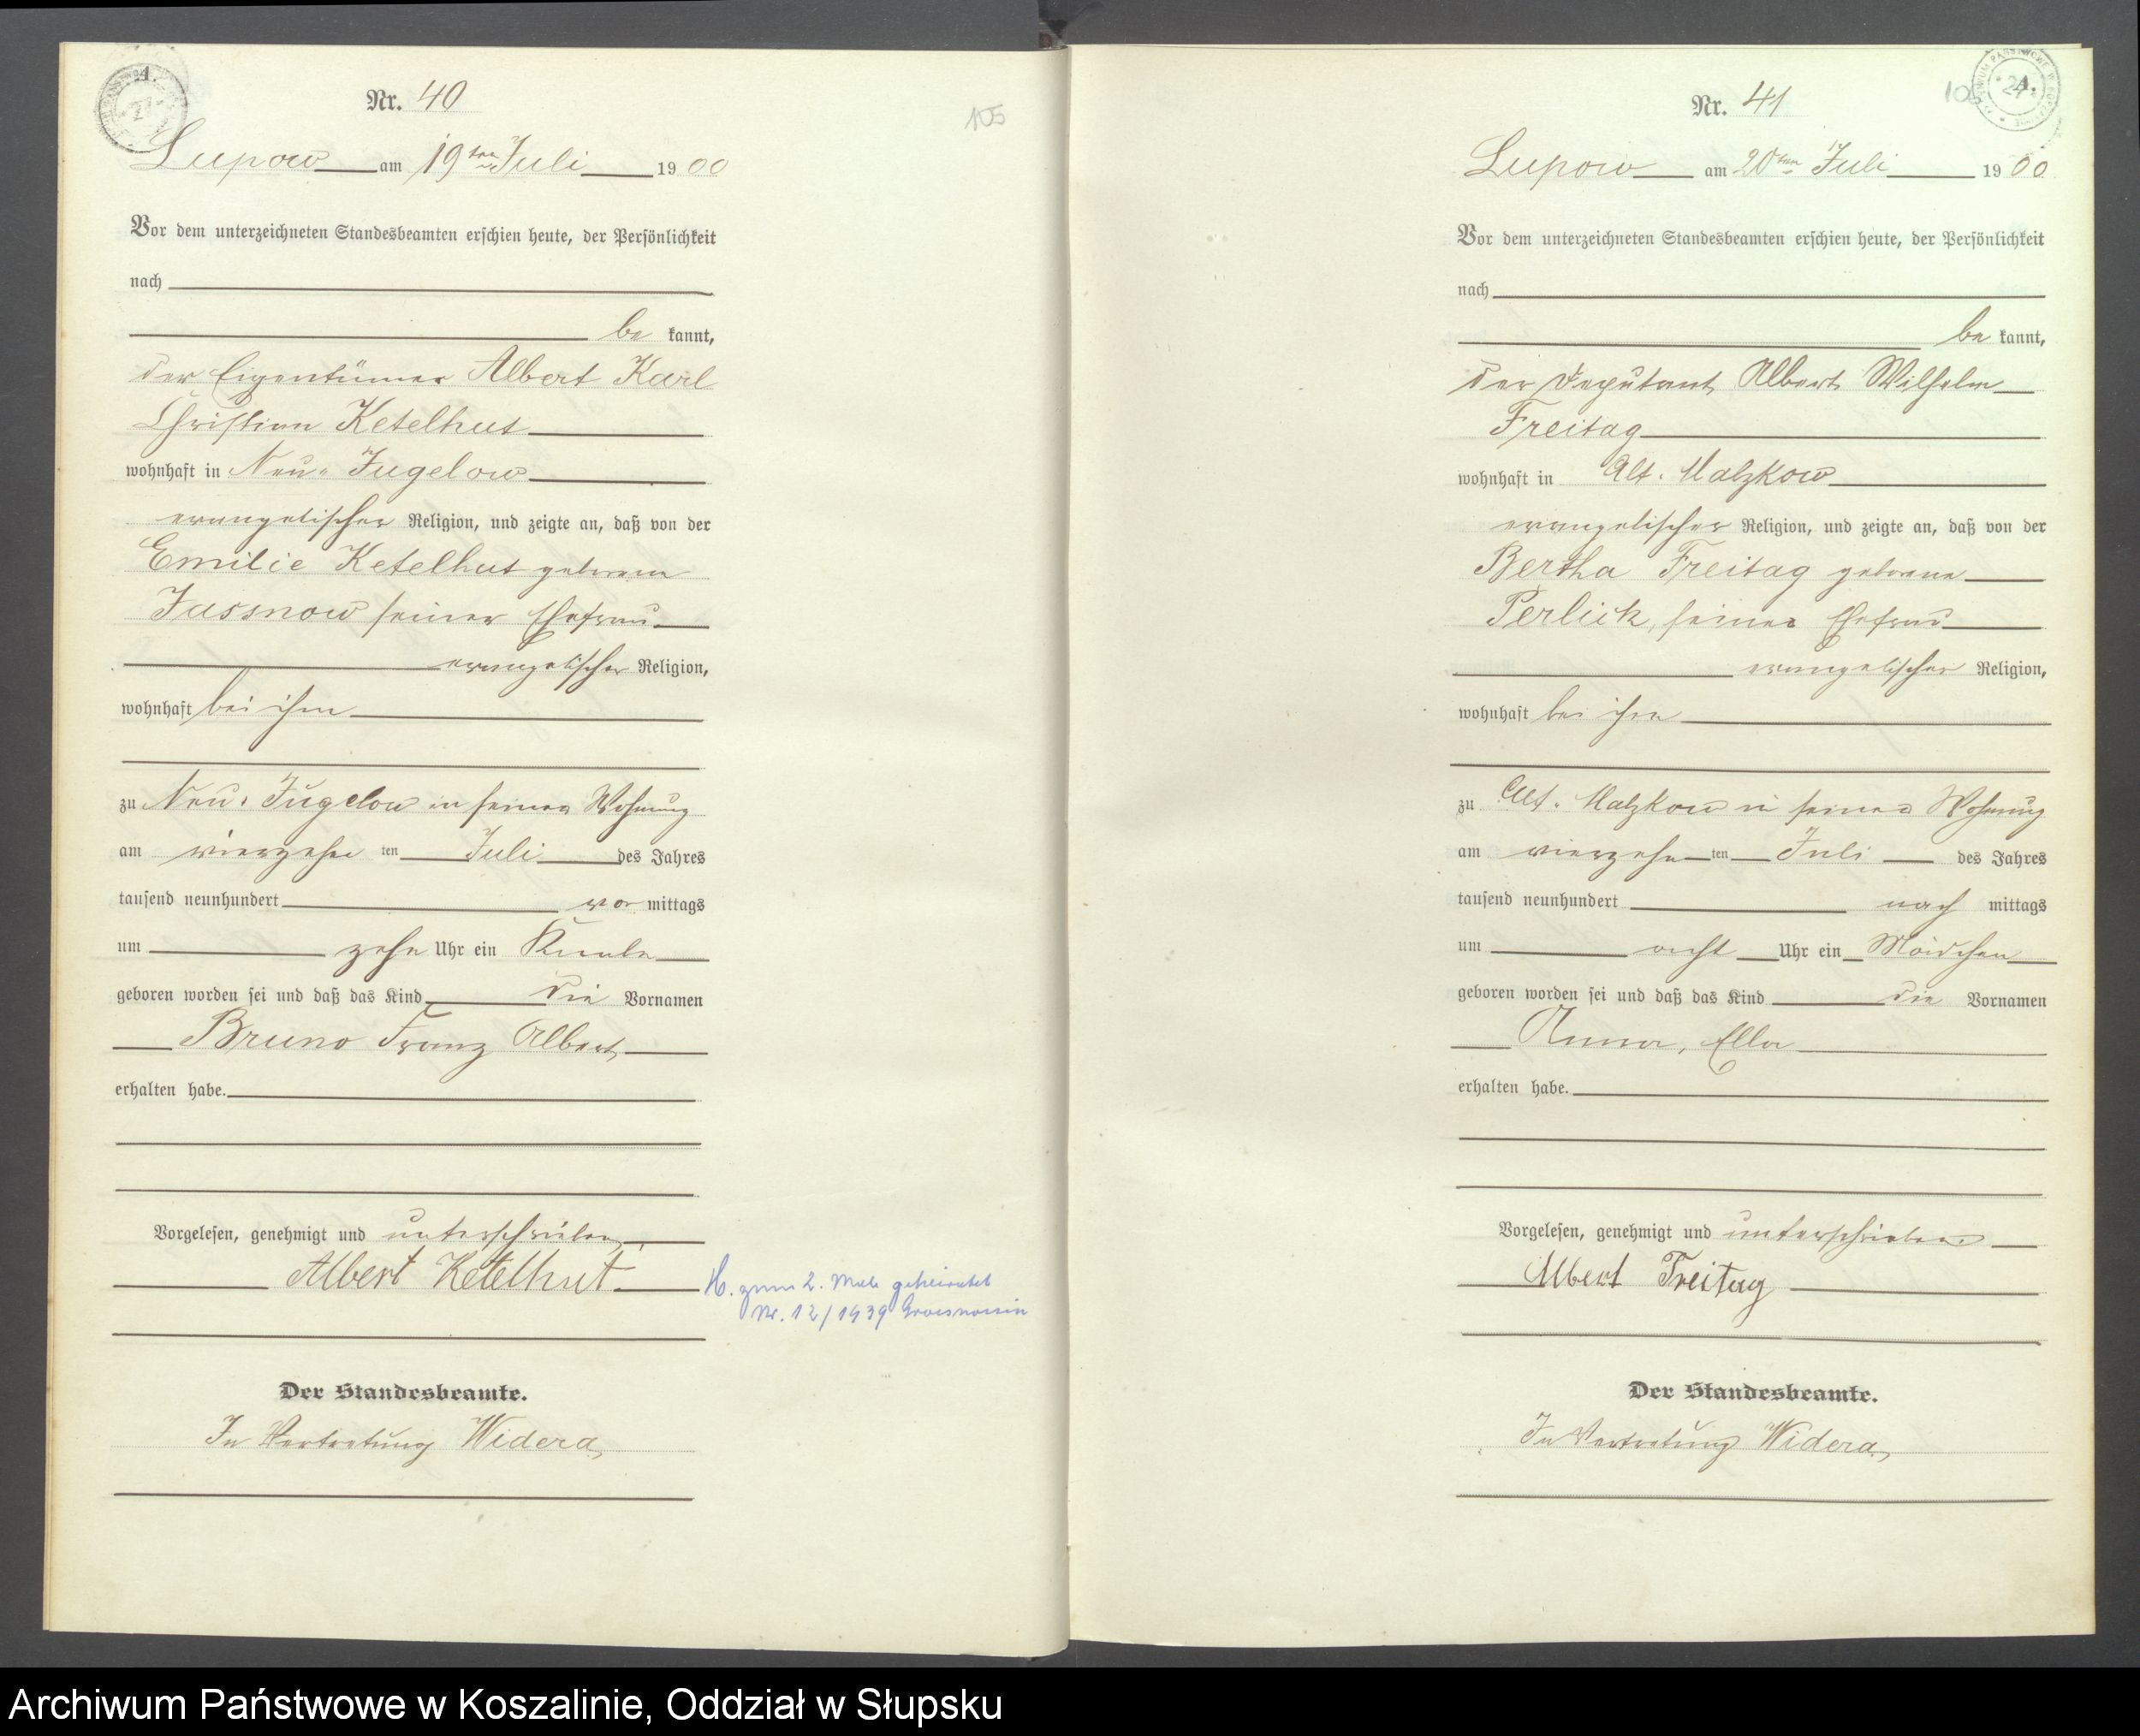 A.
Nr. 40
105
Lupow am 19ten Juli 1900
Vor dem unterzeichneten Standesbeamten erschien heute, der Persönlichkeit
nach
be kannt,
der Eigentümer Albert Karl
Christian Ketelhut
wohnhaft in Neu-Jugelow
evangelischer Religion, und zeigte an, daß von der
Emilie Ketelhut geborene
Jassnow seiner Ehefrau
evangelischer Religion,
wohnhaft bei ihm
zu Neu-Jugelow in seiner Wohnung
am vierzehn ten Juli des Jahres
tausend neunhundert vor mittags
um zehn Uhr ein Knabe
geboren worden sei und daß das Kind die Vornamen
Bruno Franz Albert
erhalten habe.
Vorgelesen, genehmigt und unterschrieben
Albert Ketelhut
H. zum 2. Male geheiratet
Nr. 12/1939 Grossnossin
Der Standesbeamte.
In Vertretung Widera
A.
Nr. 41
Lupow am 20ten Juli 1900
Vor dem unterzeichneten Standesbeamten erschien heute, der Persönlichkeit
nach
be kannt,
der Deputant Albert Wilhelm
Freitag
wohnhaft in Alt-Malzkow
evangelischer Religion, und zeigte an, daß von der
Bertha Freitag geborene
Perlick, seiner Ehefrau
evangelischer Religion,
wohnhaft bei ihm
zu Alt-Malzkow in seiner Wohnung
am vierzehn ten Juli des Jahres
tausend neunhundert nach mittags
um acht Uhr ein Mädchen
geboren worden sei und daß das Kind die Vornamen
Anna, Ella
erhalten habe.
Vorgelesen, genehmigt und unterschrieben
Albert Freitag
Der Standesbeamte.
In Vertretung Widera
Archiwum Państwowe w Koszalinie, Oddział w Słupsku